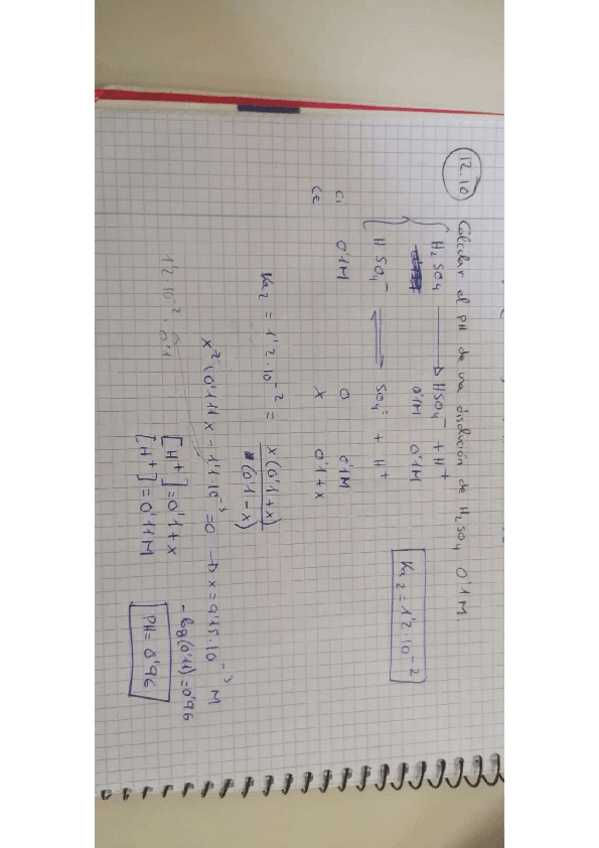 12.10 Calcular el PH de una disolución de H₂SO₄ 0'1M.
H₂SO₄ → HSO₄⁻ + H⁺
0'1M 0'1M
Ka₂ = 1'2·10⁻²
HSO₄⁻ ⇌ SO₄⁼ + H⁺
Ci 0'1M 0 0'1M
Ce X 0'1+x
Ka₂ = 1'2·10⁻² = x(0'1+x) / (0'1-x)
x² + 0'111x - 1'1·10⁻³ = 0 → x = 9'15·10⁻³ M
1'2·10⁻²·0'1
[H⁺] = 0'1+x
-log(0'11) = 0'96
[H⁺] = 0'11M
PH = 0'96